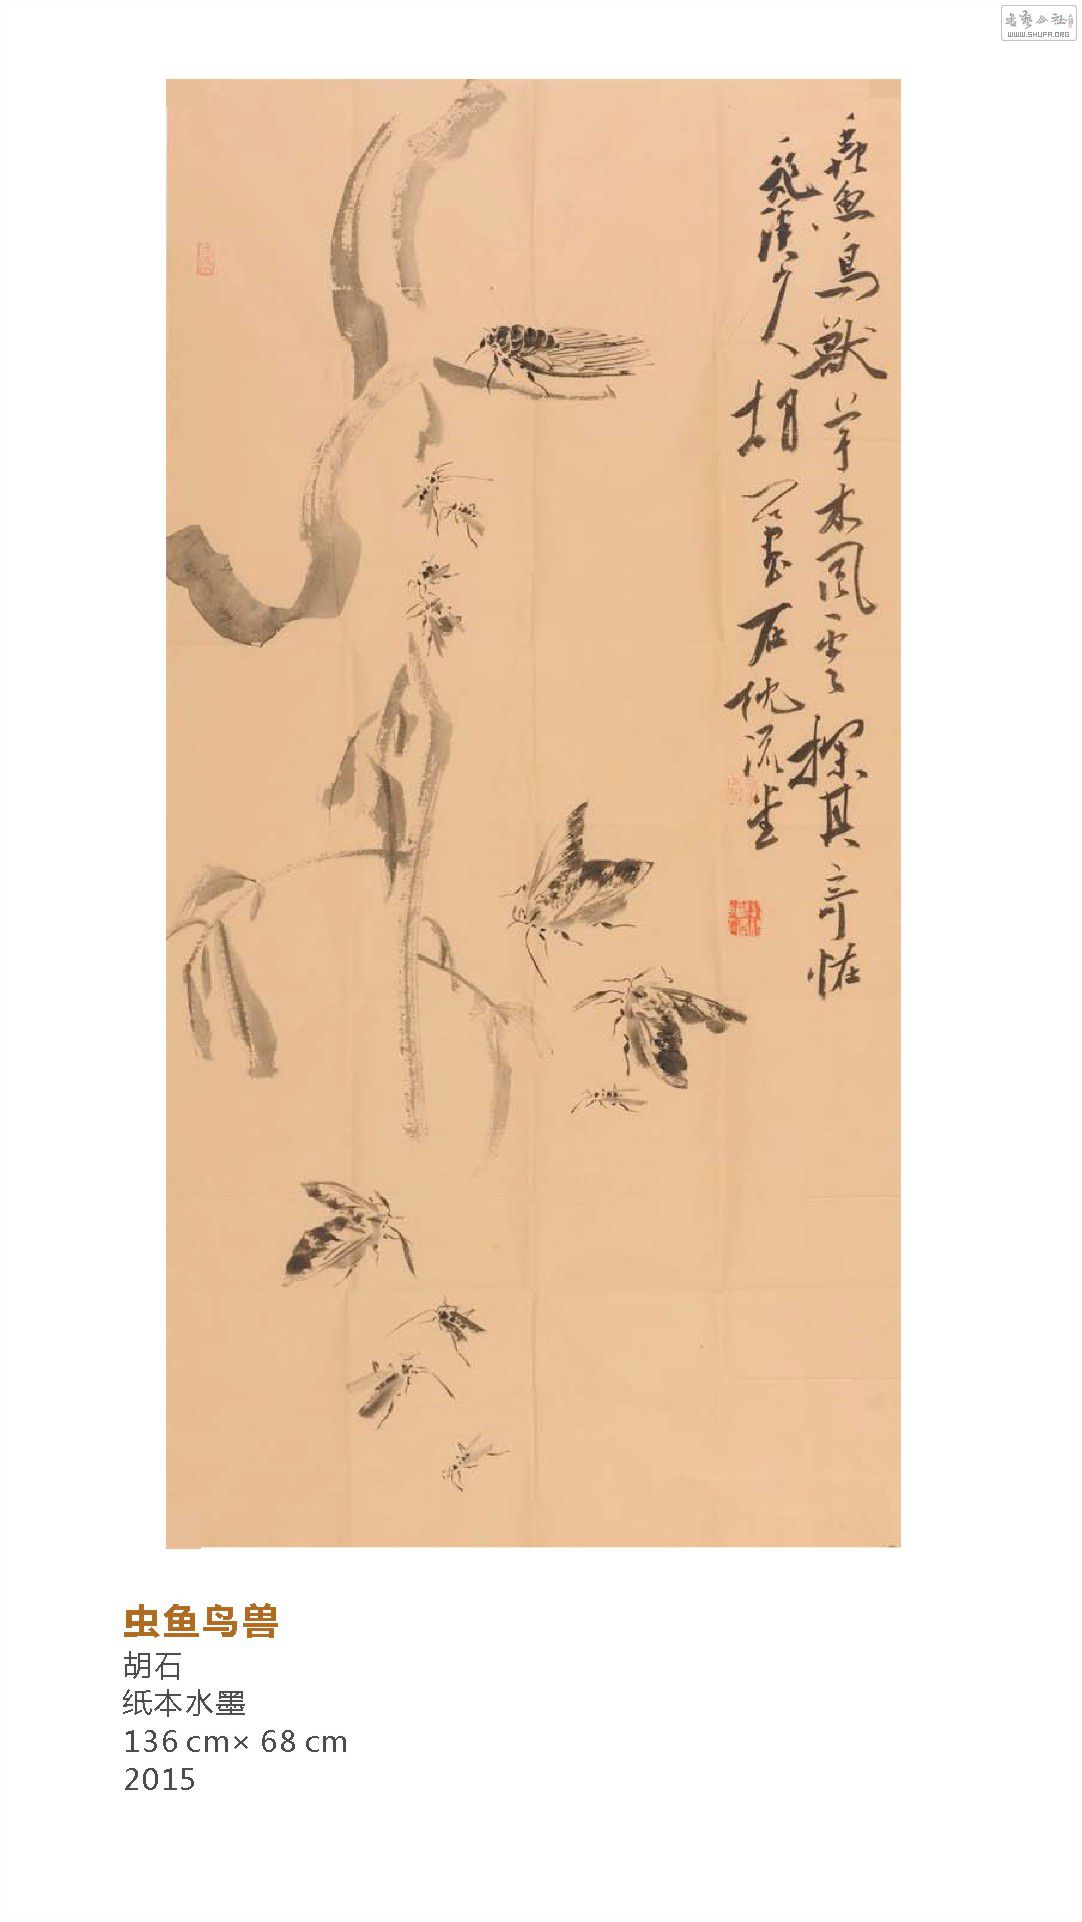 書艺公社
WWW.SHUFA.ORG
蟲魚鳥獸草木風雲探其奇怪
龍溪少人胡石畫石枕流堂
虫鱼鸟兽
胡石
纸本水墨
136 cm× 68 cm
2015